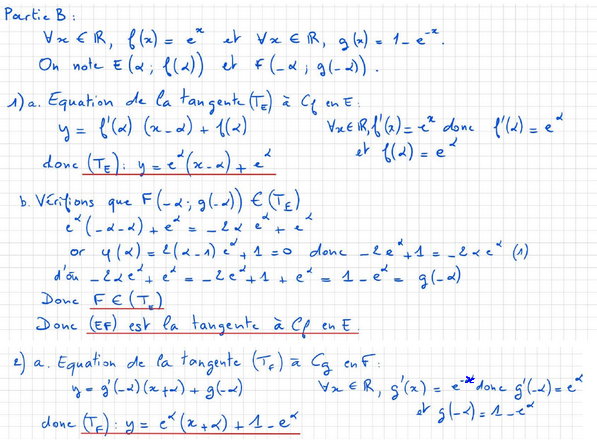 Partie B :
∀x ∈ ℝ, f(x) = eˣ et ∀x ∈ ℝ, g(x) = 1 - e⁻ˣ.
On note E(α ; f(α)) et F(-α ; g(-α)).
1) a. Equation de la tangente (T_E) à Cf en E :
y = f'(α) (x-α) + f(α) ∀x∈ℝ, f'(x) = eˣ donc f'(α) = e^α
et f(α) = e^α
donc (T_E) : y = e^α(x-α) + e^α
b. Vérifions que F(-α ; g(-α)) ∈ (T_E)
e^α(-α-α) + e^α = -2α e^α + e^α
or φ(α) = 2(α-1)e^α + 1 = 0 donc -2e^α + 1 = -2αe^α (1)
d'où -2αe^α + e^α = -2e^α + 1 + e^α = 1 - e^α = g(-α)
Donc F ∈ (T_E)
Donc (EF) est la tangente à Cf en E
2) a. Equation de la tangente (T_F) à Cg en F :
y = g'(-α)(x+α) + g(-α) ∀x ∈ ℝ, g'(x) = e⁻ˣ donc g'(-α) = e^α
et g(-α) = 1 - e^α
donc (T_F) : y = e^α(x+α) + 1 - e^α